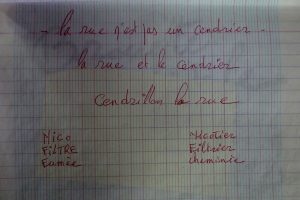 - la rue n'est pas un cendrier.
la rue et le cendrier
Cendrillon la rue
Nico
FILTRE
Fumée
Nicotier
Filtrier
cheminée